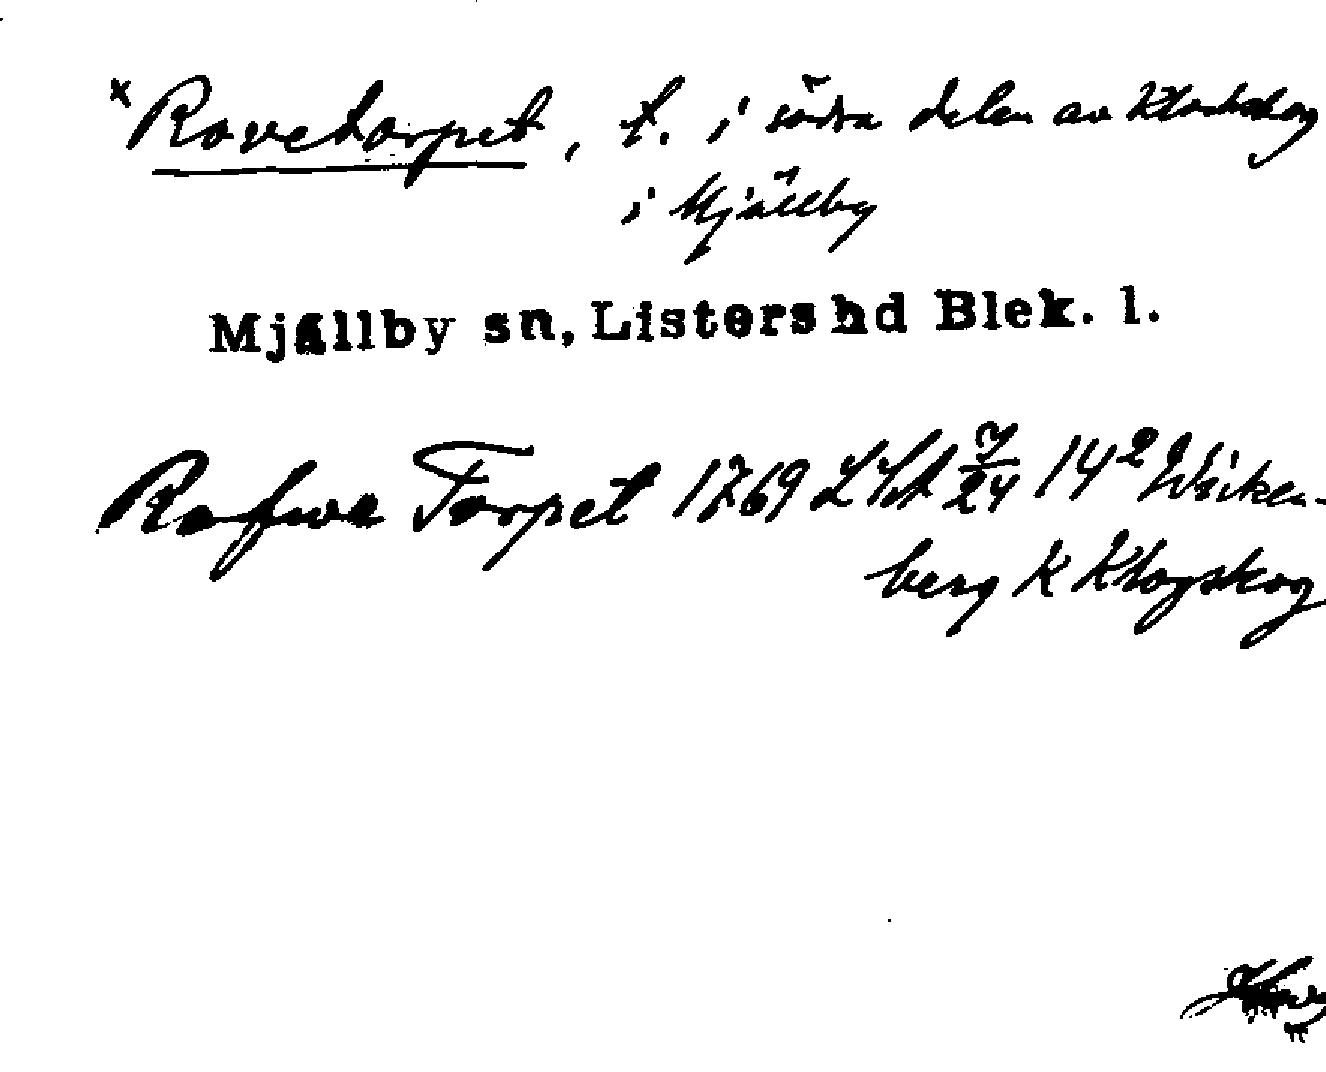 x Rovetorpet, t. i södra delen av
i Mjällby
Mjällby sn, Listers hd Blek. l.
Rofwe Torpet 1769 LSkt 7/24 14² Wäcken-
berg K Klogskog